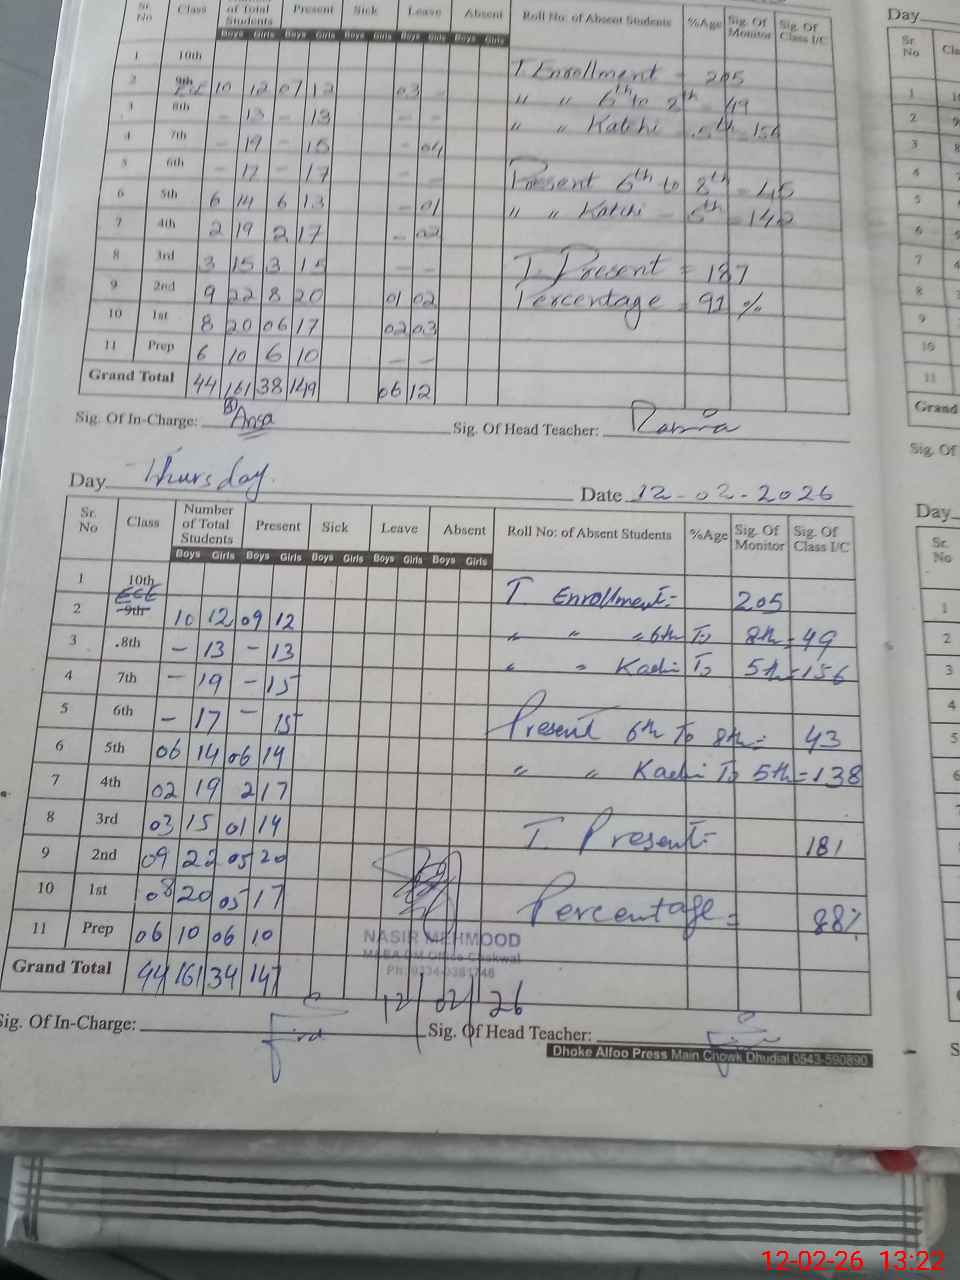 Sr. No Class of Total Students Present Sick Leave Absent Roll No: of Absent Students %Age Sig. Of Monitor Sig. Of Class I/C
Boys Girls Boys Girls Boys Girls Boys Girls Boys Girls
1 10th
T. Enrollment = 205
2 9th 10 12 07 12 03
" " 6th to 8th = 49
3 8th - 13 - 13 - -
" " Katchi 5th - 156
4 7th - 19 - 15 - 04
5 6th - 17 - 17 - -
Present 6th to 8th = 45
6 5th 6 14 6 13 - 01
" " Katchi - 5th - 142
7 4th 2 19 2 17 - 02
8 3rd 3 15 3 15 - -
T. Present = 187
9 2nd 9 22 8 20 01 02
Percentage = 91 %
10 1st 8 20 06 17 02 03
11 Prep 6 10 6 10 - -
Grand Total 44 161 38 149 06 12
Sig. Of In-Charge: Sig. Of Head Teacher:
Day Thursday Date 12-02-2026
Sr. No Class Number of Total Students Present Sick Leave Absent Roll No: of Absent Students %Age Sig. Of Monitor Sig. Of Class I/C
Boys Girls Boys Girls Boys Girls Boys Girls Boys Girls
1 10th
T. Enrollment:- 205
2 ECE 9th 10 12 09 12
" " " 6th To 8th = 49
3 8th - 13 - 13
" " Kachi To 5th = 156
4 7th - 19 - 15
5 6th - 17 - 15
Present 6th To 8th = 43
6 5th 06 14 06 14
" " Kachi To 5th = 138
7 4th 02 19 2 17
8 3rd 03 15 01 14
T. Present:- 181
9 2nd 09 22 05 20
10 1st 08 20 05 17
Percentage = 88%
11 Prep 06 10 06 10
NASIR MEHMOOD
Grand Total 44 161 34 147
12/02/26
Sig. Of In-Charge: Sig. Of Head Teacher:
Dhoke Alfoo Press Main Chowk Dhudial 0543-590890
Day
Sr. No
1
2
3
4
5
6
7
8
9
10
11
Grand
Sig. Of
Day
Sr. No
1
2
3
4
5
6
12-02-26 13:22